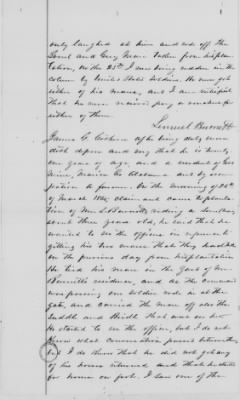 only laughed at him and rode off the
Sorrel and Grey Mare taken from his plan-
tation. On the 25th I saw being ridden in the
column by United States Soldiers. He never got
either of his mares, and I am satisfied
that he never received pay or voucher for
either of them.
Lemuel Burnett
James C. Cochran after being duly sworn
doth depose and say that he is twenty
one years of age and a resident of
Mine, Marion Co Alabama and by occu-
pation a farmer. On the morning of 26th
of March 1865 claim and came to plantation
of Mr L. Burnett riding a
about three years old, he said that he
wanted to see the officer in reference to
getting his two mares that they had taken
on the previous day from his plantation
He tied his mare on the Yard of Mr
Burnett's residence, and as the command
was passing one Soldier rode in at the
gate, and carried the mare off also the
Saddle and Bridle that was on her
He started to see the officer, but I do not
know what conversation passed between them
but I do know that he did not get any
of his horses returned and that he started
for home on foot. I saw one of the